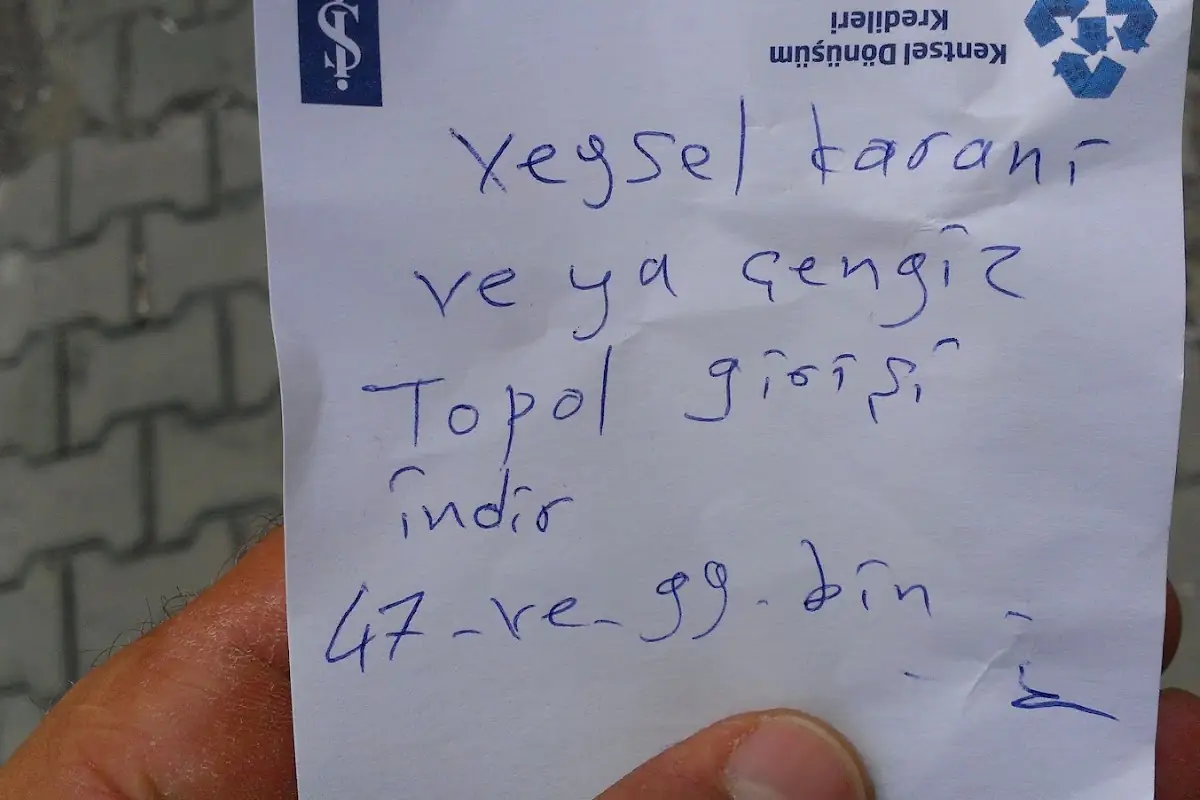 Kentsel Dönüşüm
Kredileri
Veysel karani
ve ya çengiz
Topol girişi
indir
47-ve-99-bin